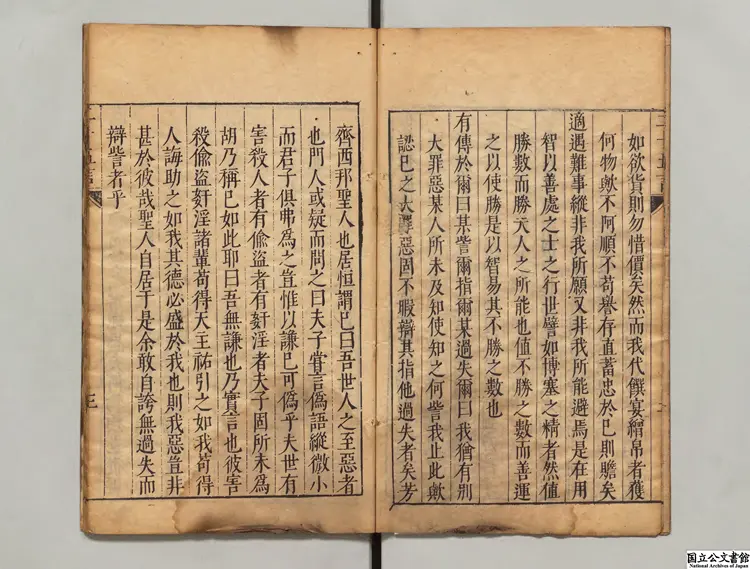 如欲貨則勿惜價矣然而我代饌宴繒帛者獲
何物歟不阿順不苟譽存直蓄忠於已則贍矣
適遇難事縱非我所願又非我所能避焉是在用
智以善處之士之行世譬如博塞之精者然值
勝數而勝亢人之所能也值不勝之數而善運
之以使勝是以智易其不勝之數也
有傳於爾曰某訾爾指爾某過失爾曰我猶有別
大罪惡某人所未及知使知之何訾我止此歟
認已之大罪惡固不暇辯其指他過失者矣芳
齊西那聖人也居恒謂已曰吾世人之至惡者
也門人或疑而問之曰夫子嘗言偽語縱微小
而君子俱弗為之豈惟以謙已可偽乎夫世有
害殺人者有偷盜者有奸淫者夫子固所未為
胡乃稱已如此耶曰吾無謙也乃實言也彼害
殺偷盜奸淫諸輩苟得天王祐引之如我苟得
人誨助之如我其德必盛於我也則我惡豈非
甚於彼哉聖人自居于是余敢自誇無過失而
辯訾者乎
三
国立公文書館
National Archives of Japan